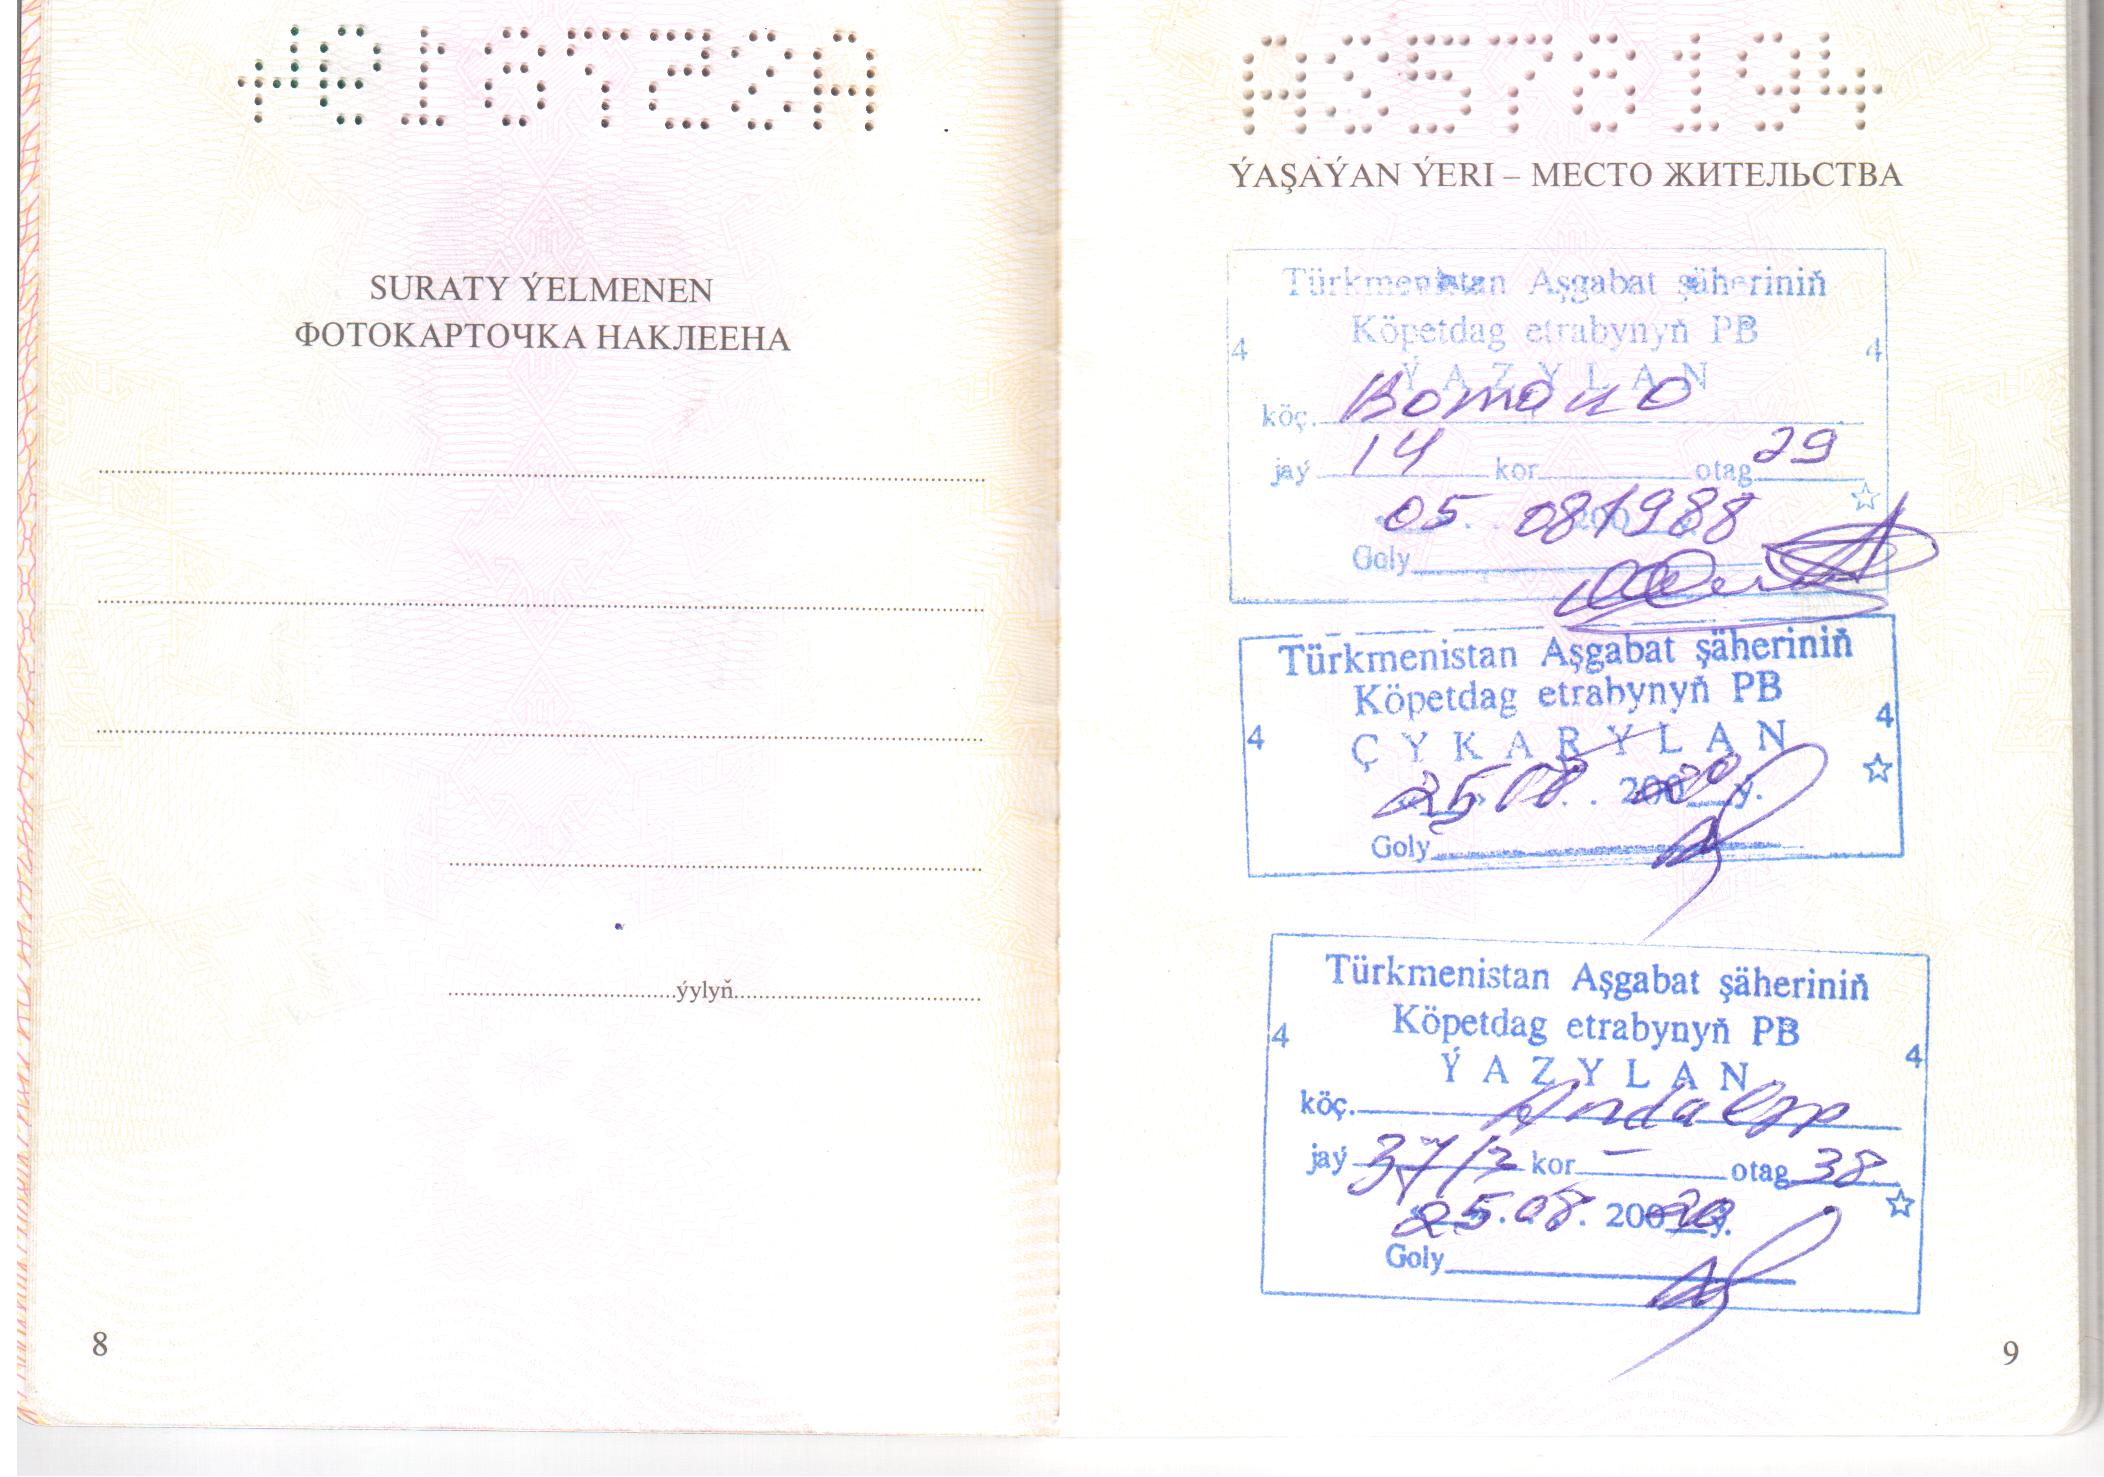 SURATY ÝELMENEN
ФОТОКАРТОЧКА НАКЛЕЕНА
ýylyň
8
AS578194
ÝAŞAÝAN ÝERI – МЕСТО ЖИТЕЛЬСТВА
Türkmenistan Aşgabat şäheriniň
Köpetdag etrabynyň PB
4 4
ÝAZYLAN
köç.
jaý 14 kor otag 29
05 08 1988
Goly
Türkmenistan Aşgabat şäheriniň
Köpetdag etrabynyň PB
4 4
ÇYKARYLAN
«25» 08 . . 20020 ý.
Goly
Türkmenistan Aşgabat şäheriniň
Köpetdag etrabynyň PB
4 4
ÝAZYLAN
köç. Andalyp
jaý kor – otag 38
«25» . 08 . 20020 ý.
Goly
9